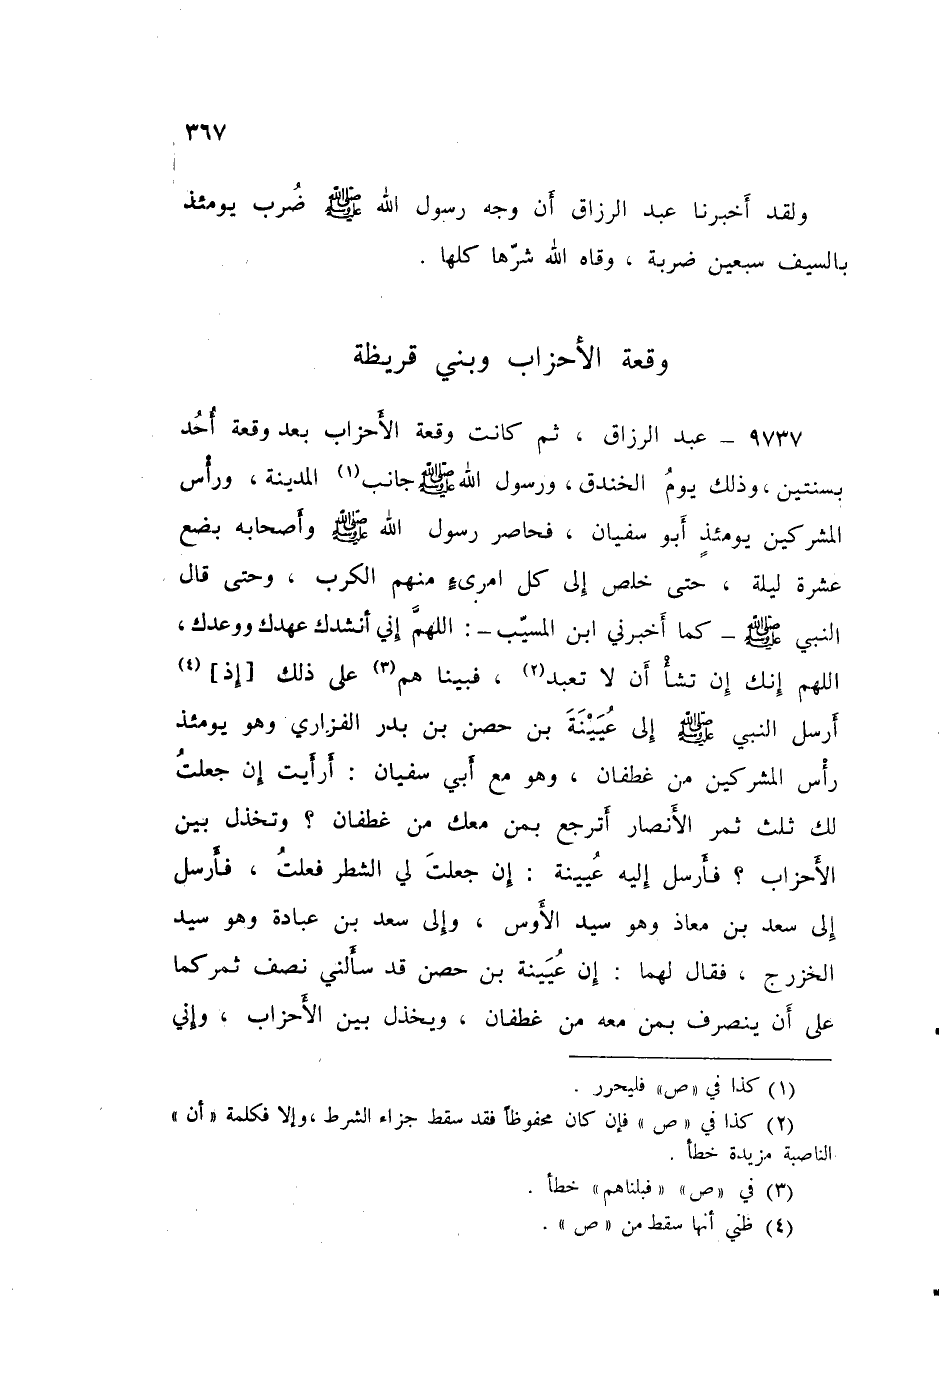 ٣٦٧
ولقد أخبرنا عبد الرزاق أن وجه رسول الله ﷺ ضُرب يومئذ
بالسيف سبعين ضربة ، وقاه الله شرّها كلها .
وقعة الأحزاب وبني قريظة
٩٧٣٧ ـ عبد الرزاق ، ثم كانت وقعة الأحزاب بعد وقعة أُحُد
بسنتين ، وذلك يومُ الخندق ، ورسول الله ﷺ جانب(١) المدينة ، ورأْس
المشركين يومئذٍ أبو سفيان ، فحاصر رسول الله ﷺ وأصحابه بضع
عشرة ليلة ، حتى خلص إلى كل امرىءٍ منهم الكرب ، وحتى قال
النبي ﷺ ـ كما أخبرني ابن المسيّب ـ : اللهمَّ إني أنشدك عهدك ووعدك ،
اللهم إنك إن تشأْ أن لا تعبد(٢) ، فبينا هم(٣) على ذلك [إذ](٤)
أرسل النبي ﷺ إلى عُيَيْنَةَ بن حصن بن بدر الفزاري وهو يومئذ
رأْس المشركين من غطفان ، وهو مع أبي سفيان : أرأيت إن جعلتُ
لك ثلث ثمر الأنصار أترجع بمن معك من غطفان ؟ وتخذل بين
الأحزاب ؟ فأرسل إليه عُيينة : إن جعلتَ لي الشطر فعلتُ ، فأرسل
إلى سعد بن معاذ وهو سيد الأوس ، وإلى سعد بن عبادة وهو سيد
الخزرج ، فقال لهما : إن عُيَينة بن حصن قد سألني نصف ثمركما
على أن ينصرف بمن معه من غطفان ، ويخذل بين الأحزاب ، وإني
(١) كذا في «ص» فليحرر .
(٢) كذا في «ص» فإن كان محفوظاً فقد سقط جزاء الشرط ، وإلا فكلمة «أن»
الناصبة مزيدة خطأ .
(٣) في «ص» «فبلناهم» خطأ .
(٤) ظني أنها سقط من «ص» .